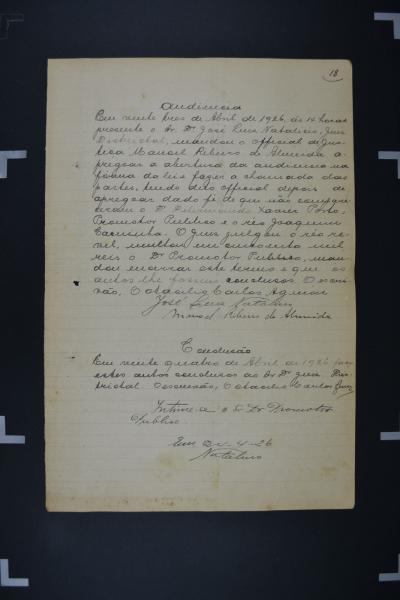 18
Audiencia
Em vinte tres de Abril de 1926, ás 14 horas
presente o Sr. Dr. José Luis Natalicio, Juiz
Districtal, mandou o Official de Jus-
tiça Manoel Ribeiro de Almeida a-
pregoar a abertura da audiencia na
forma da lei e fazer a chamada das
partes, tendo dito official depois de
apregoar dado fé de que não compare-
ceram o Dr. Xavier Porto,
Promotor Publico e o réo Joaquim
O Juiz julgou o réo re-
vel, multou em cincoenta mil
reis o Dr Promotor Publico, man-
dou lavrar este termo e que os
autos lhe fossem conclusos. O escri-
vão, Octacilio Carlos
José Luis Natalicio
Manoel Ribeiro de Almeida
Conclusão
Em vinte quatro de Abril de 1926 faço
estes autos conclusos ao Sr Dr Juiz Dis-
trictal. O escrivão, Octacilio Carlos
Intime-se o Sr Dr Promotor
Publico.
Em 24-4-26
Natalicio